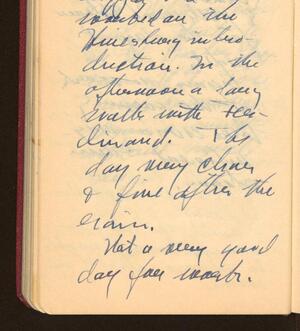 worked on the
Hinesburg intro-
duction. In the
afternoon a long
walk with Fer-
dinand. The
day very clear
& fine after the
rain.
Not a very good
day for work.